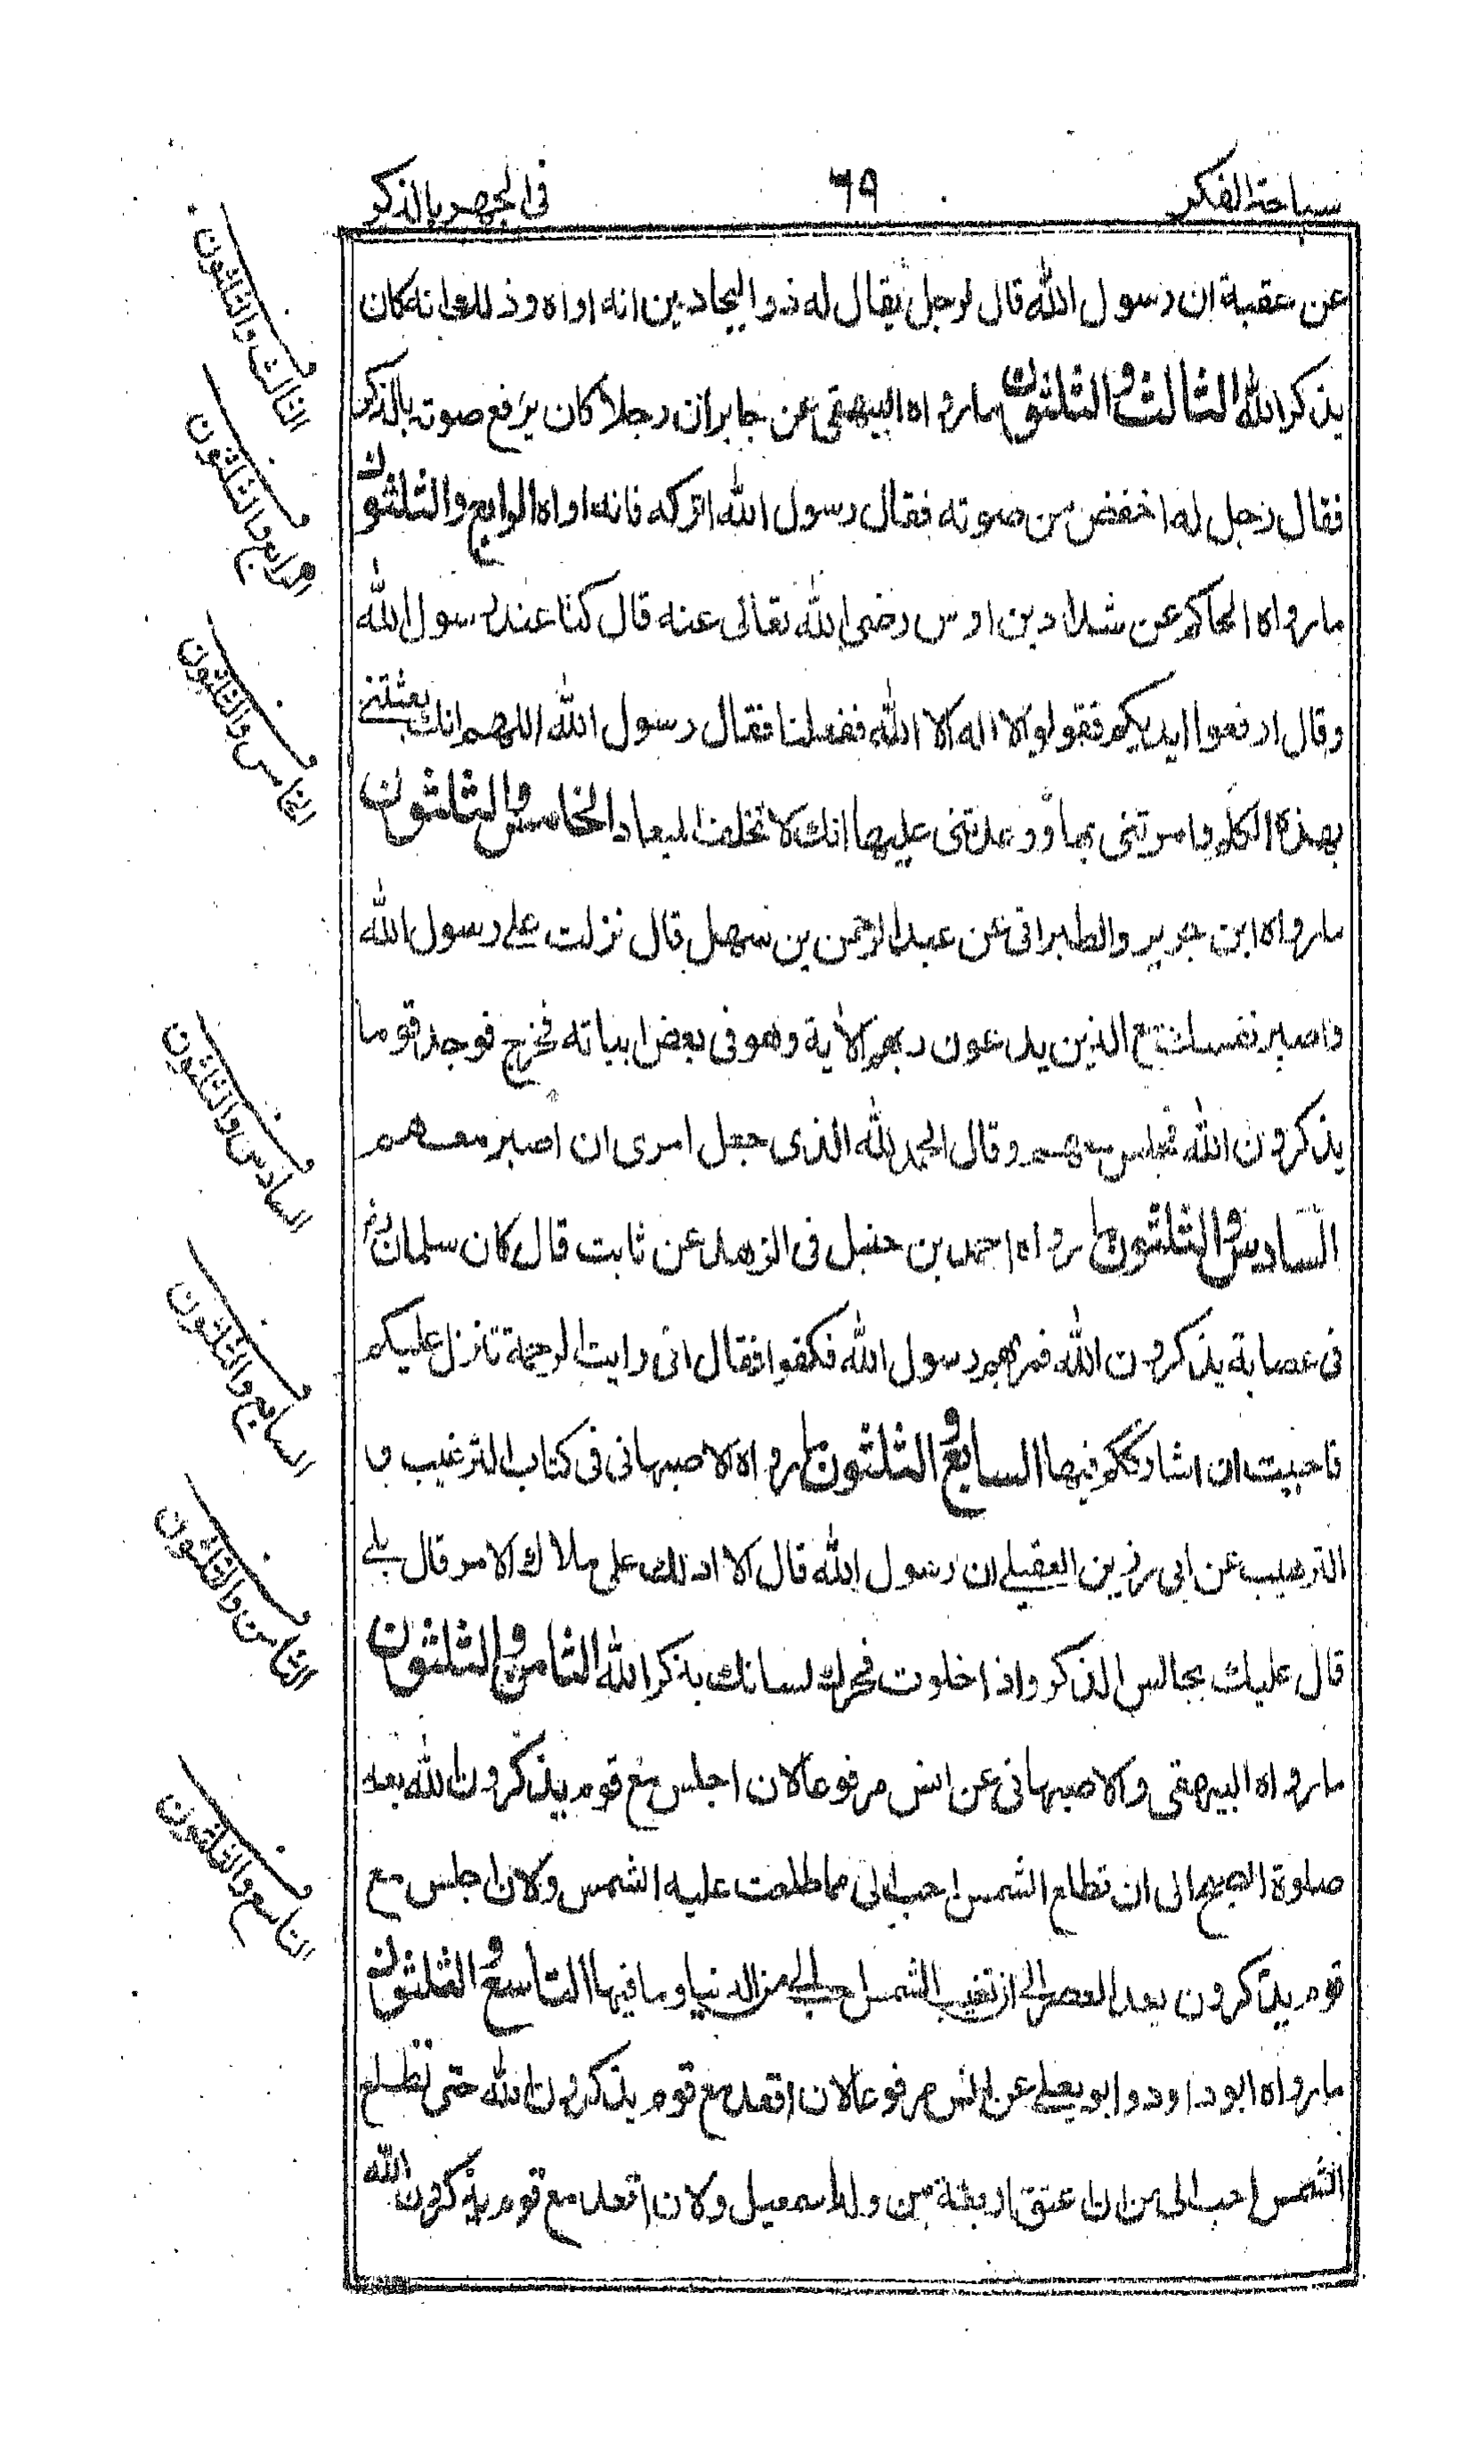 سباحة الفكر ٦٩ فى الجهر بالذكر
عن عقبة ان رسول الله قال لرجل يقال له ذو البجادين انه اواه وذلك انه كان
يذكر الله الثالث والثلثون ما رواه البيهقى عن جابر ان رجلا كان يرفع صوته بالذكر
فقال رجل لو اخفض من صوته فقال رسول الله اتركه فانه اواه الرابع والثلثون
ما رواه الحاكم عن شداد بن اوس رضى الله تعالى عنه قال كنا عند رسول الله
وقال ارفعوا ايديكم فقولوا لا اله الا الله ففعلنا فقال رسول الله اللهم انك بعثتنى
بهذه الكلمة وامرتنى بها ووعدتنى عليها انك لا تخلف الميعاد الخامس والثلثون
ما رواه ابن جرير والطبرانى عن عبد الرحمن بن سهل قال نزلت على رسول الله
واصبر نفسك مع الذين يدعون ربهم الاية وهو فى بعض ابياته فخرج فوجد قوما
يذكرون الله فجلس معهم وقال الحمد لله الذى جعل امرى ان اصبر معهم
السادس والثلثون ما رواه احمد بن حنبل فى الزهد عن ثابت قال كان سلمان رض
فى عصابة يذكرون الله فمر بهم رسول الله فكفوا فقال انى رايت الرحمة تنزل عليكم
فاحببت ان اشارككم فيها السابع والثلثون ما رواه الاصبهانى فى كتاب الترغيب و
الترهيب عن ابى رزين العقيلى ان رسول الله قال الا ادلك على ملاك الامر قال بلى
قال عليك بمجالس الذكر واذا خلوت فحرك لسانك بذكر الله الثامن والثلثون
ما رواه البيهقى والاصبهانى عن انس مرفوعا لان اجلس مع قوم يذكرون الله بعد
صلوة الصبح الى ان تطلع الشمس احب الى مما طلعت عليه الشمس ولان اجلس مع
قوم يذكرون بعد العصر الى ان تغيب الشمس احب الى من الدنيا وما فيها التاسع والثلثون
ما رواه ابو داود وابو يعلى عن انس مرفوعا لان اقعد مع قوم يذكرون الله حتى تطلع
الشمس احب الى من ان اعتق اربعة من ولد اسمعيل ولان اقعد مع قوم يذكرون الله
الثالث والثلثون
الرابع والثلثون
الخامس والثلثون
السادس والثلثون
السابع والثلثون
الثامن والثلثون
التاسع والثلثون